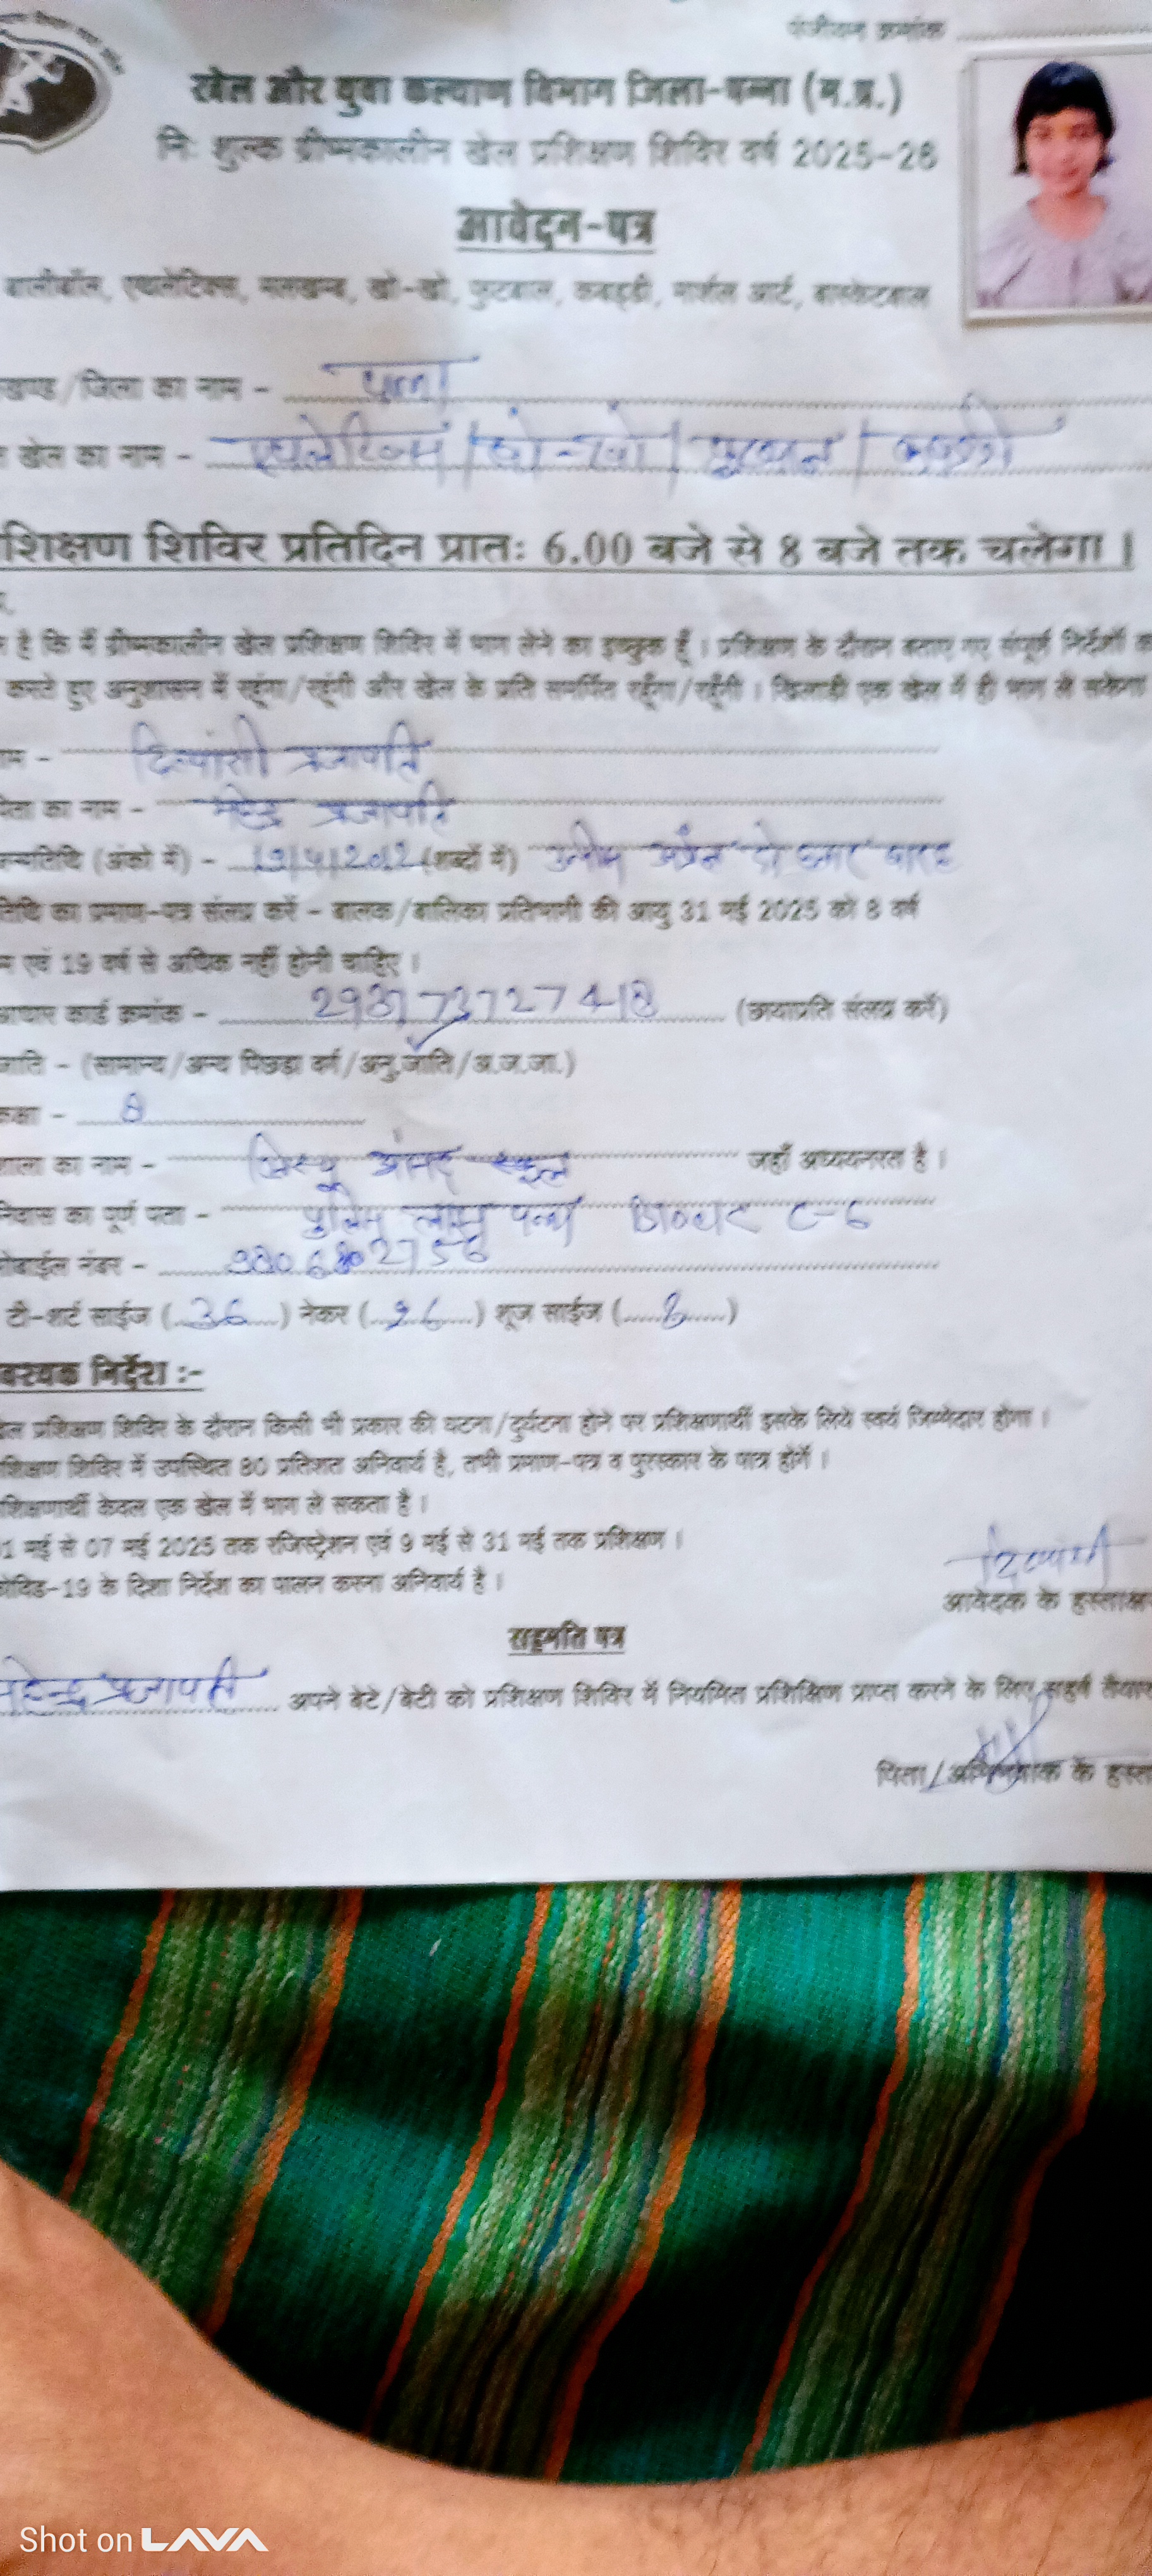 पंजीयन क्रमांक
खेल और युवा कल्याण विभाग जिला-पन्ना (म.प्र.)
नि: शुल्क ग्रीष्मकालीन खेल प्रशिक्षण शिविर वर्ष 2025-26
आवेदन-पत्र
बालीबॉल, एथलेटिक्स, मलखम्ब, खो-खो, फुटबाल, कबड्डी, मार्शल आर्ट, बास्केटबाल
खण्ड/जिला का नाम - पन्ना
खेल का नाम - एथलेटिक्स / खो-खो / फुटबाल / कबड्डी
शिक्षण शिविर प्रतिदिन प्रातः 6.00 बजे से 8 बजे तक चलेगा।
है कि मैं ग्रीष्मकालीन खेल प्रशिक्षण शिविर में भाग लेने का इच्छुक हूँ। प्रशिक्षण के दौरान बताए गए संपूर्ण निर्देशों
करते हुए अनुशासन में रहूंगा/रहूंगी और खेल के प्रति समर्पित रहूँगा/रहूँगी। खिलाडी एक खेल में ही भाग ले सकेगा
दिव्यांसी प्रजापति
का नाम - महेन्द्र प्रजापति
(अंको में) - 19/4/2012 (शब्दों में) उन्नीस अप्रैल दो हजार बारह
तिथि का प्रमाण-पत्र संलग्न करें - बालक/बालिका प्रतिभागी की आयु 31 मई 2025 को 8 वर्ष
एवं 19 वर्ष से अधिक नहीं होनी चाहिए।
कार्ड क्रमांक - (छायाप्रति संलग्न करें)
जाति - (सामान्य/अन्य पिछड़ा वर्ग/अनु.जाति/अ.ज.जा.)
कक्षा - 8
का नाम - स्कूल जहाँ अध्ययनरत है।
निवास का पूर्ण पता - पुलिस लाइन पन्ना C-6
नंबर -
टी-शर्ट साईज (36) नेकर (26) शूज साईज ( )
निर्देश :-
प्रशिक्षण शिविर के दौरान किसी भी प्रकार की घटना/दुर्घटना होने पर प्रशिक्षणार्थी इसके लिये स्वयं जिम्मेदार होगा।
शिक्षण शिविर में उपस्थित 80 प्रतिशत अनिवार्य है, तभी प्रमाण-पत्र व पुरस्कार के पात्र होगें।
शिक्षणार्थी केवल एक खेल में भाग ले सकता है।
1 मई से 07 मई 2025 तक रजिस्ट्रेशन एवं 9 मई से 31 मई तक प्रशिक्षण।
कोविड-19 के दिशा निर्देश का पालन करना अनिवार्य है।
आवेदक के हस्ताक्ष
सहमति पत्र
महेन्द्र प्रजापति अपने बेटे/बेटी को प्रशिक्षण शिविर में नियमित प्रशिक्षिण प्राप्त करने के लिए सहर्ष तैयार
पिता/अभिभावक के हस्ता
Shot on LAVA